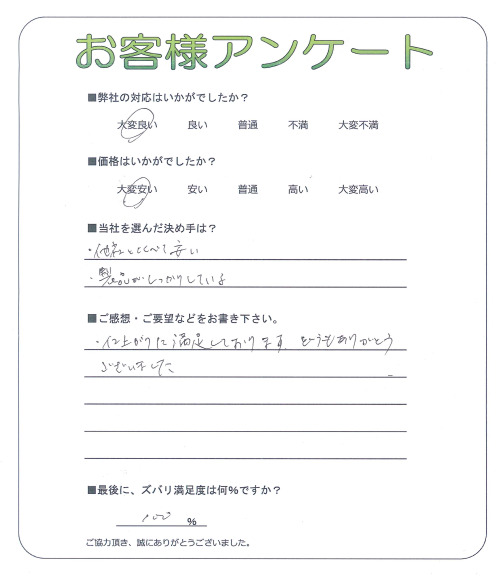 お客様アンケート
■弊社の対応はいかがでしたか？
大変良い 良い 普通 不満 大変不満
■価格はいかがでしたか？
大変安い 安い 普通 高い 大変高い
■当社を選んだ決め手は？
・他社とくらべて安い
・製品がしっかりしている
■ご感想・ご要望などをお書き下さい。
・仕上がりに満足しております。どうもありがとう
ございました
■最後に、ズバリ満足度は何%ですか？
100 %
ご協力頂き、誠にありがとうございました。